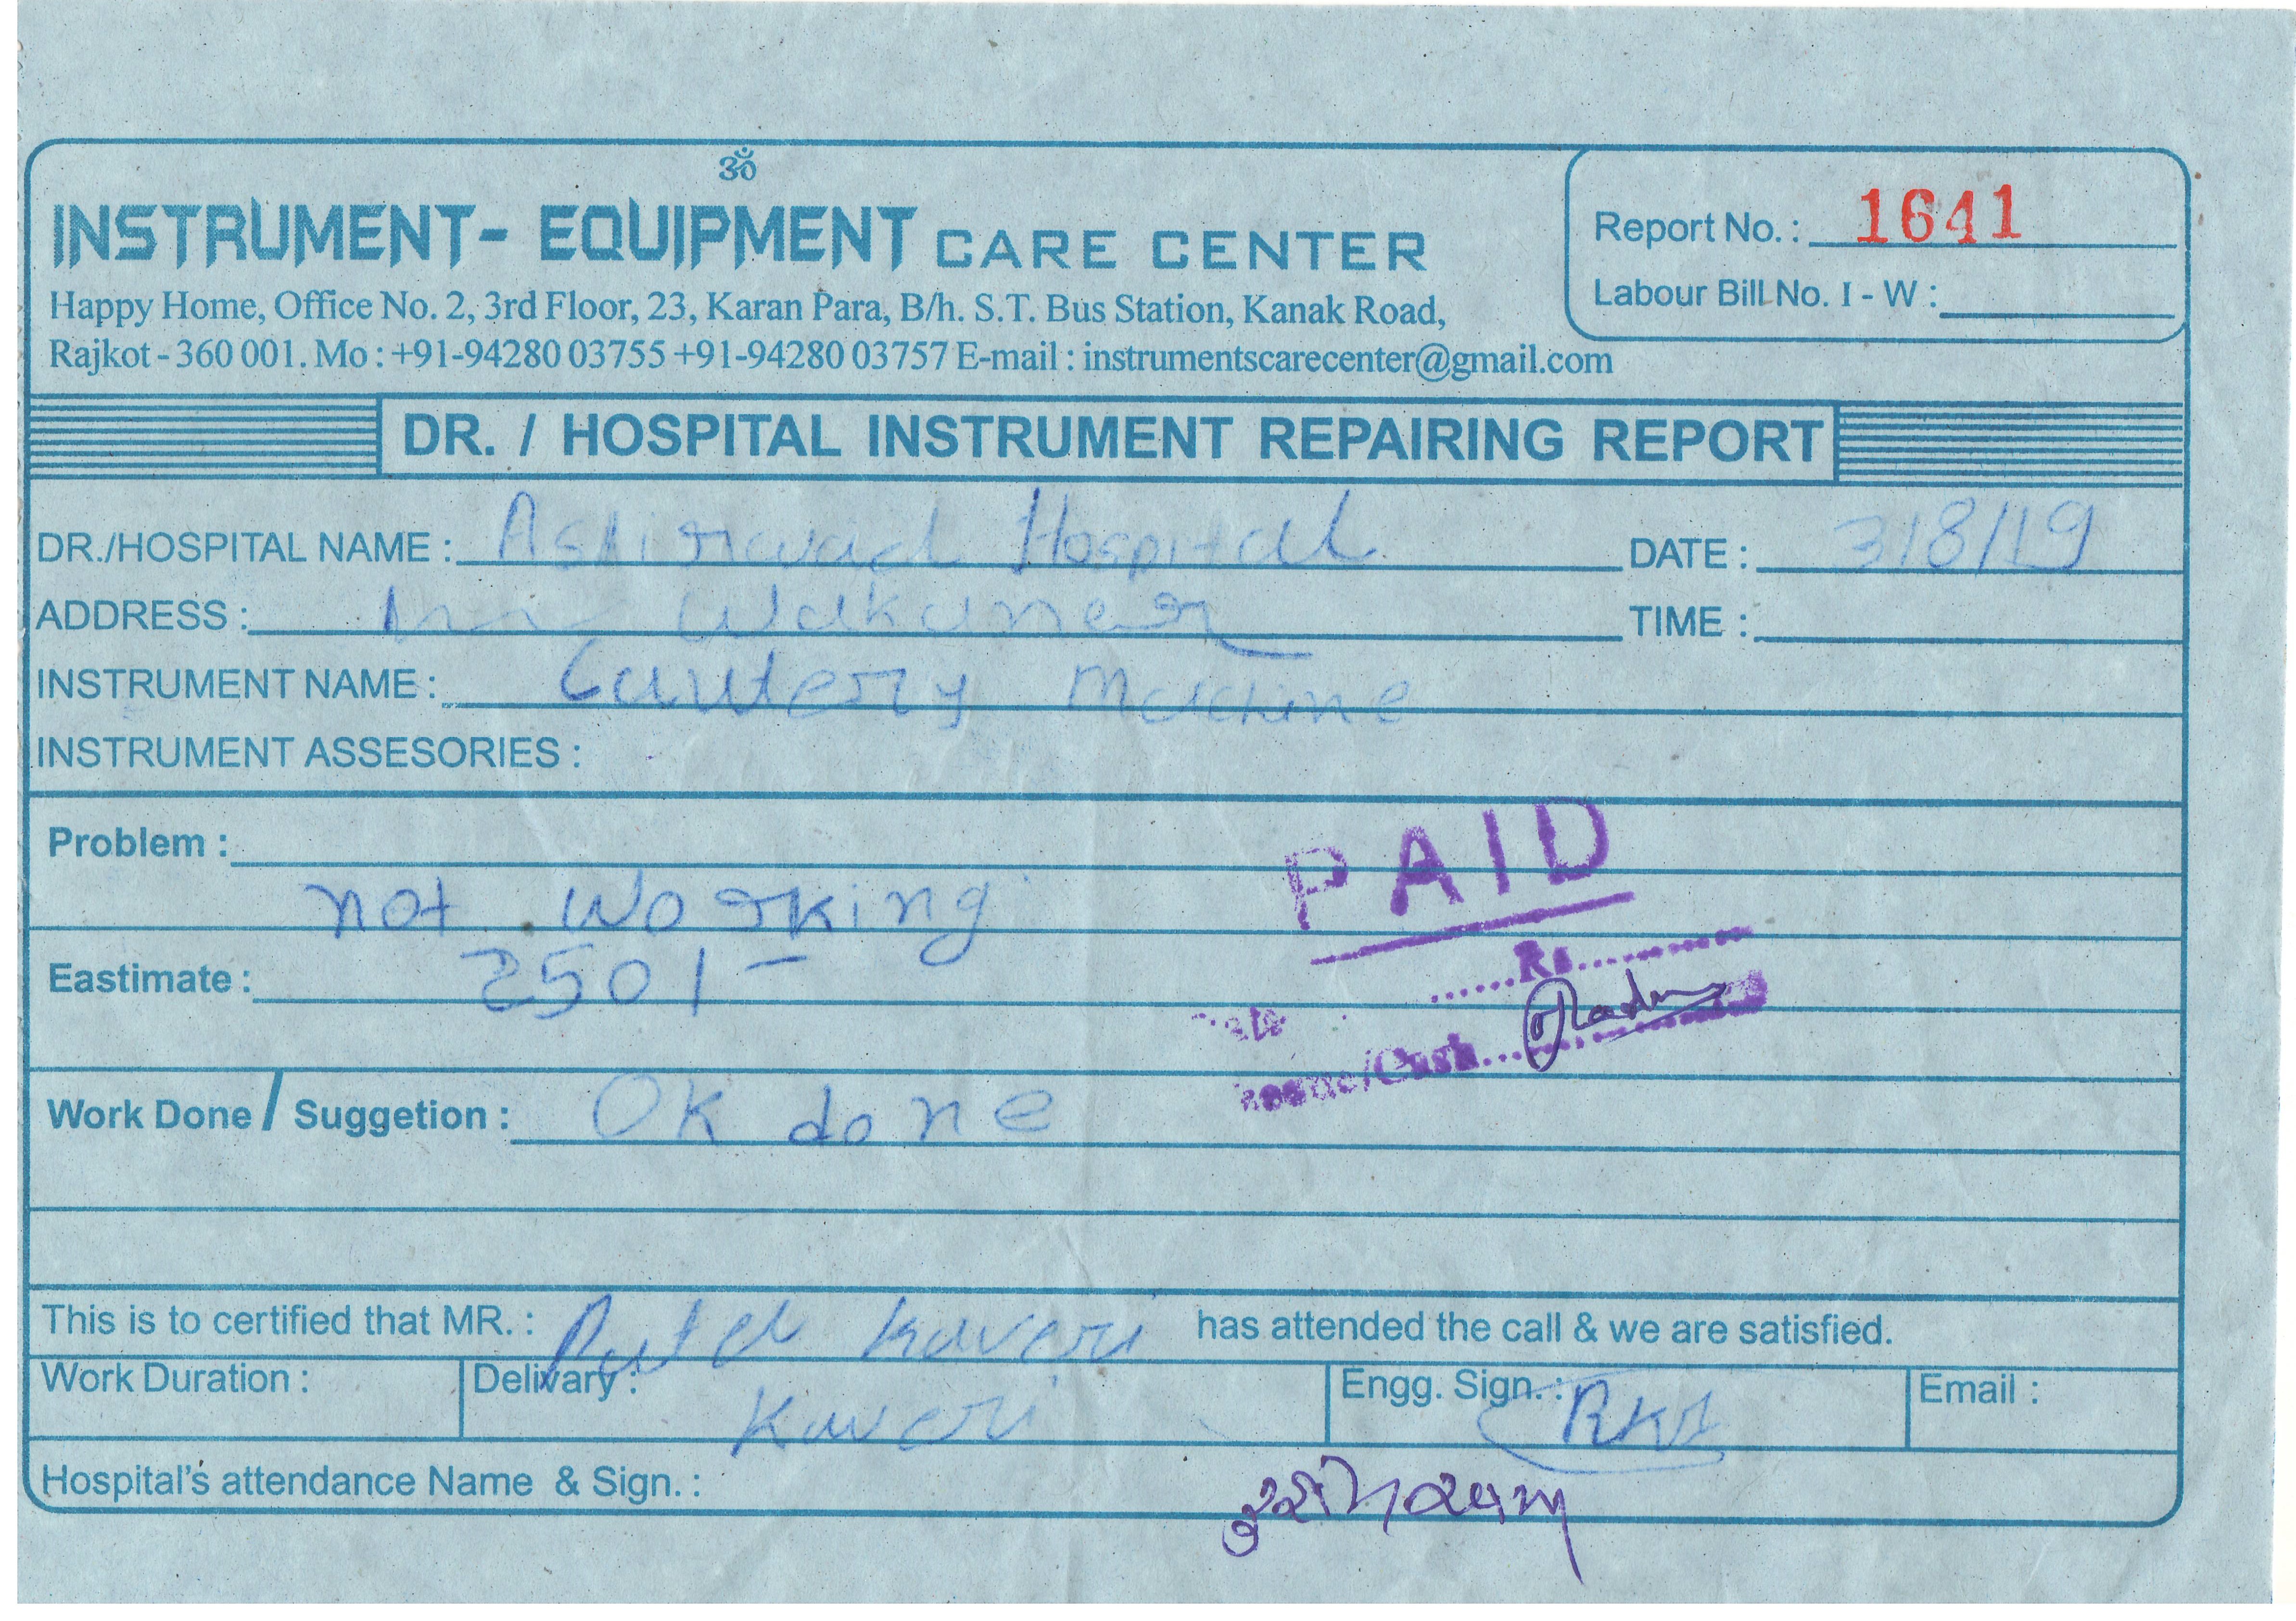 ॐ
INSTRUMENT- EQUIPMENT CARE CENTER
Happy Home, Office No. 2, 3rd Floor, 23, Karan Para, B/h. S.T. Bus Station, Kanak Road,
Rajkot - 360 001. Mo : +91-94280 03755 +91-94280 03757 E-mail : instrumentscarecenter@gmail.com
Report No. : 1641
Labour Bill No. I - W :
DR. / HOSPITAL INSTRUMENT REPAIRING REPORT
DR./HOSPITAL NAME : Ashirwad Hospital DATE : 3/8/19
ADDRESS : Wakaner TIME :
INSTRUMENT NAME : Cautery Machine
INSTRUMENT ASSESORIES :
Problem :
not working
PAID
Eastimate : 250/-
Rs
/Cash
Work Done / Suggetion : Ok done
This is to certified that MR. : Patel Kaveri has attended the call & we are satisfied.
Work Duration : Delivary : Kaveri Engg. Sign. : Email :
Hospital's attendance Name & Sign. :